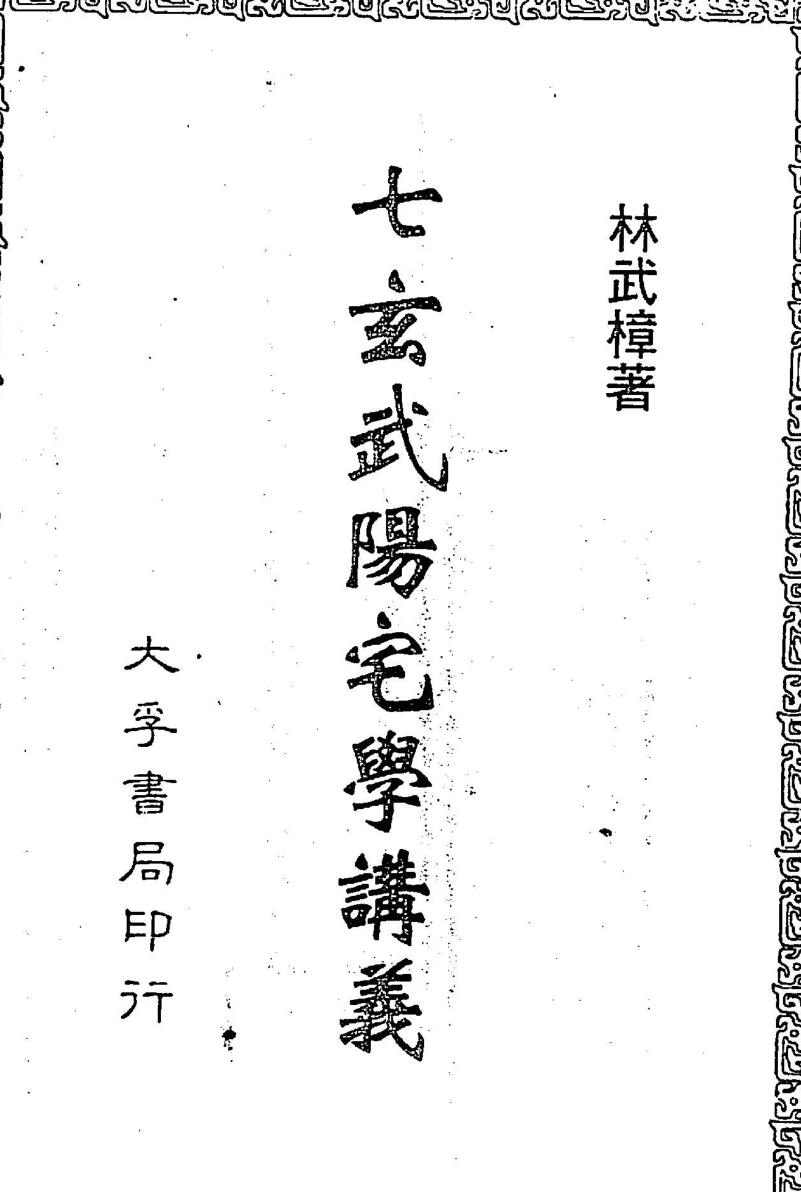 林武樟著
七玄武陽宅學講義
大孚書局印行